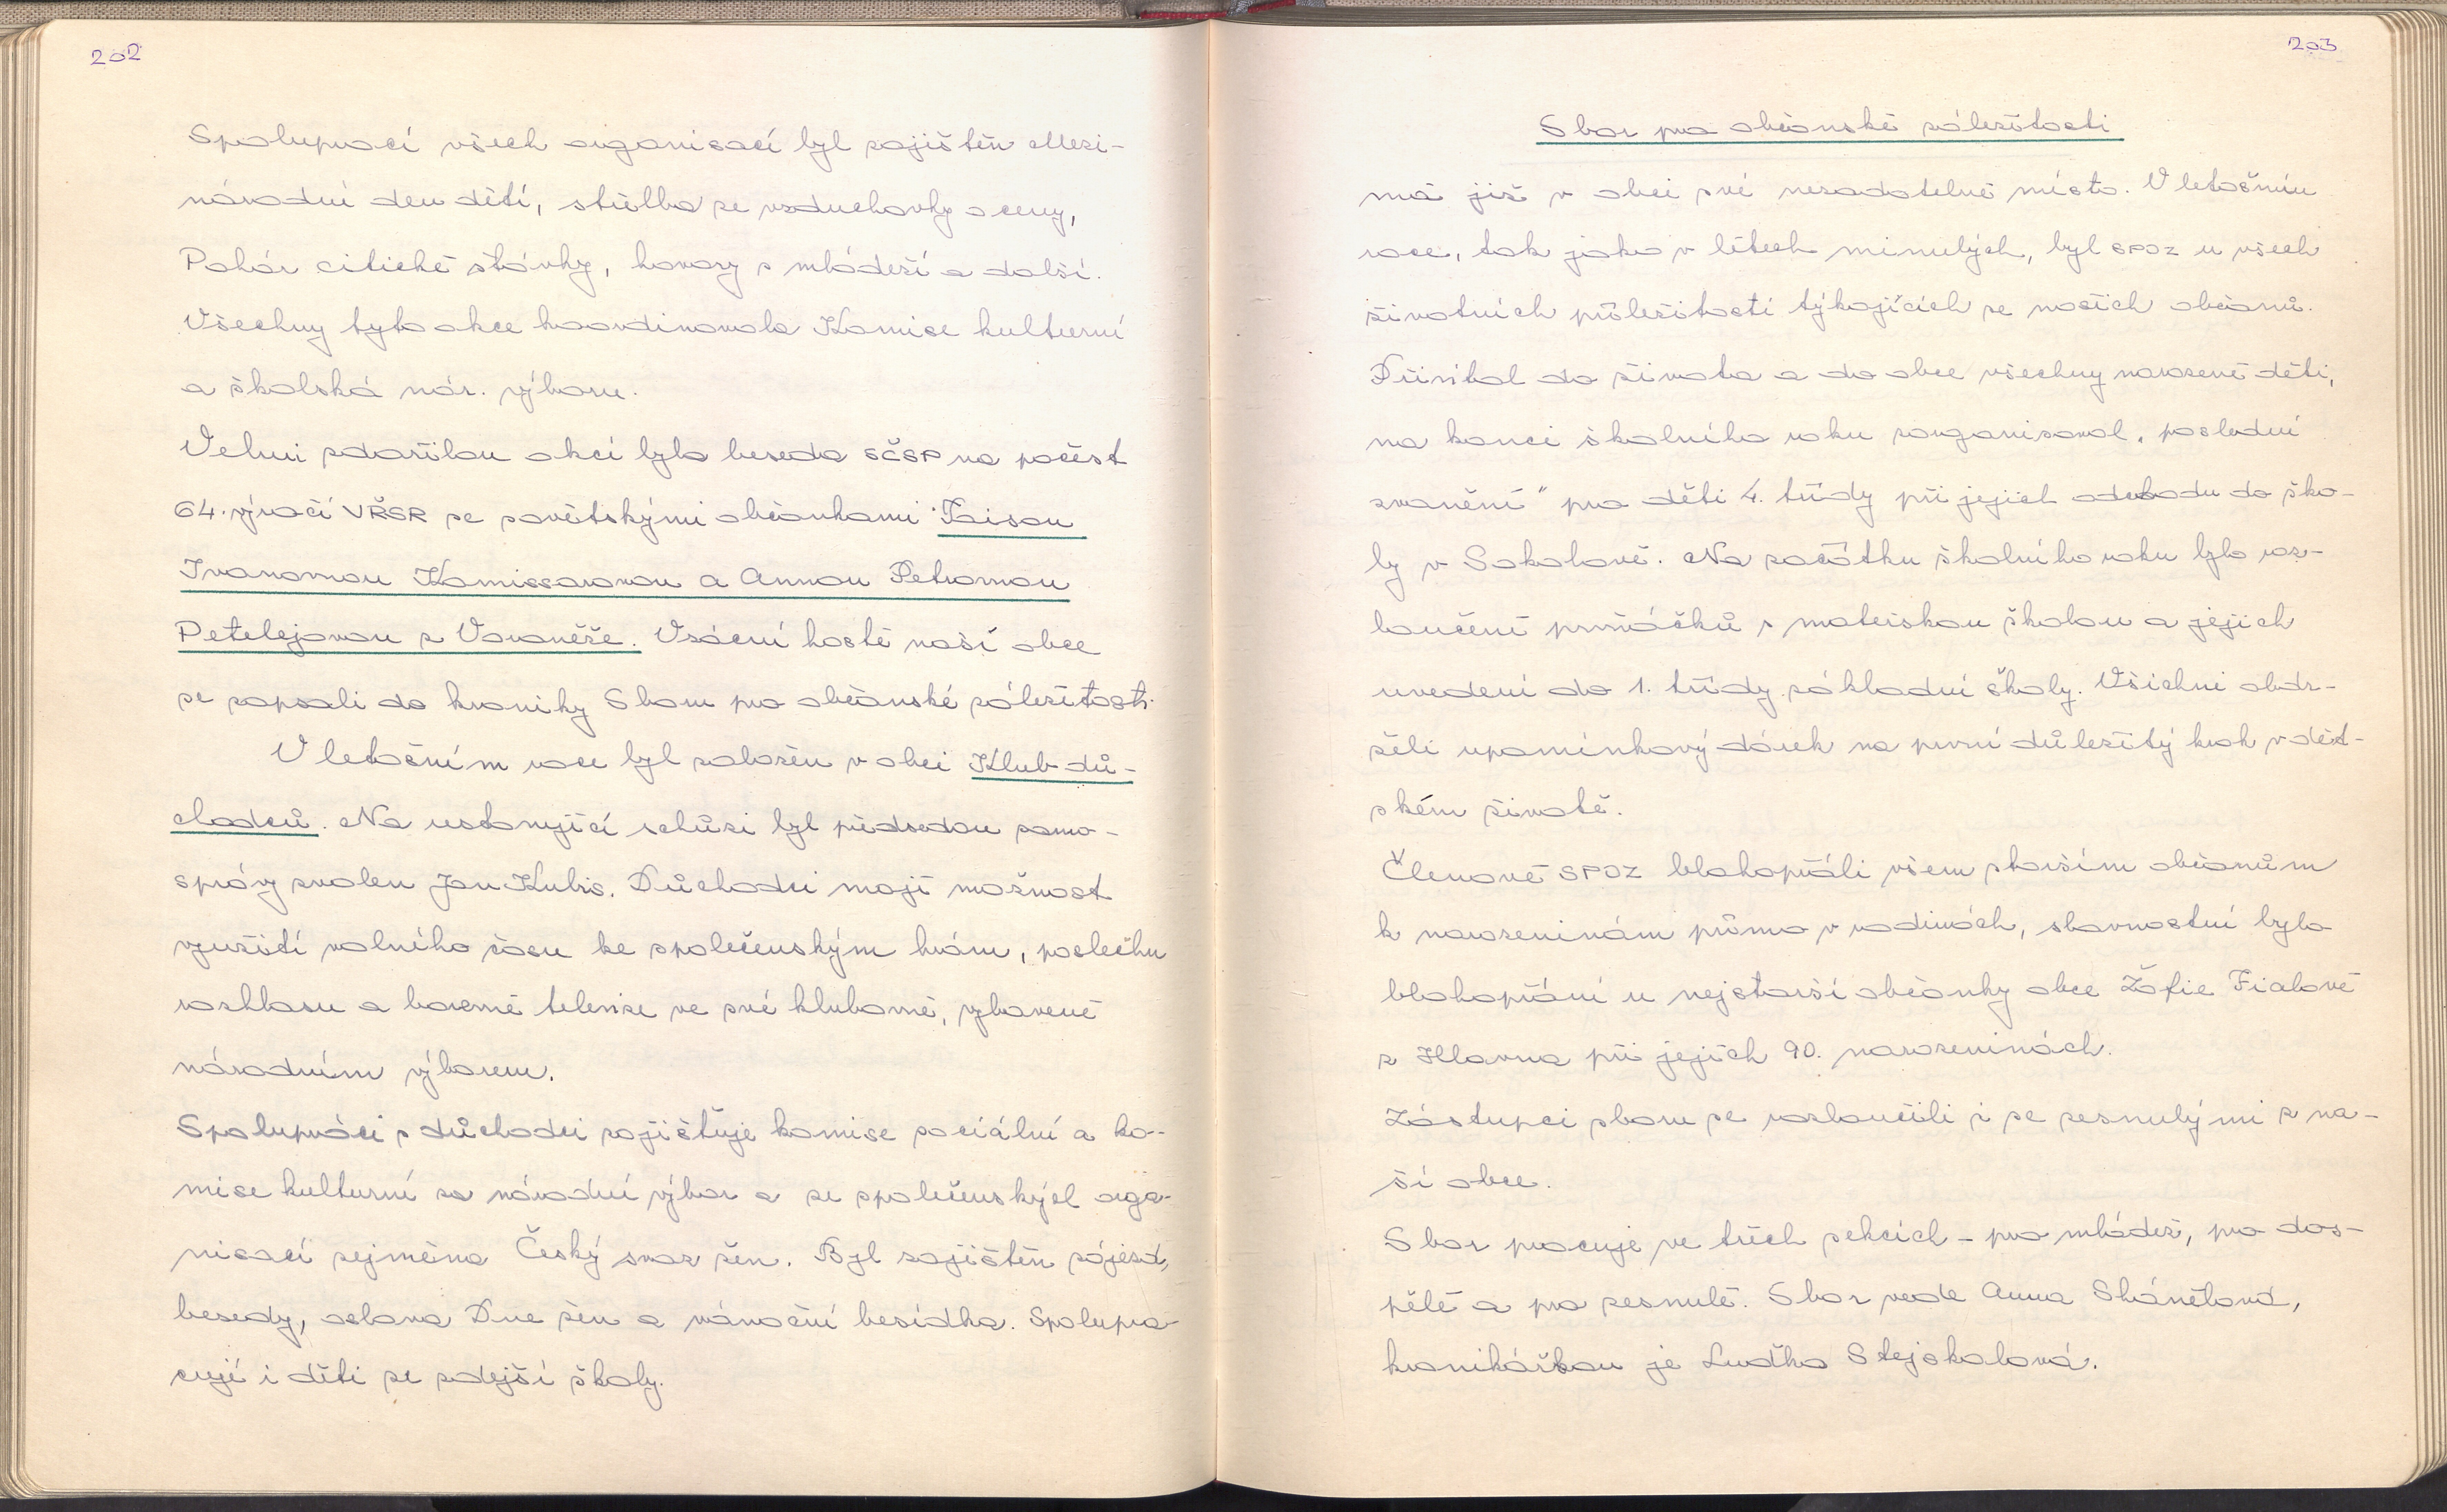 202
Spoluprací všech organisací byl zajištěn Mezi-
národní den dětí, střelba ze vzduchovky o ceny,
Pohár citické šťávky, hovory s mládeží a další.
Všechny tyto akce koordinovala Komise kulturní
a školská nár. výboru.
Velmi zdařilou akcí byla beseda SČSP na počest
64. výročí VŘSR se sovětskými občankami Taisou
Ivanovnou Komissarovou a Annou Petrovnou
Petelejovou z Voroněže. Vzácní hosté naší obce
se zapsali do kroniky Sboru pro občanské záležitosti.
V letošním roce byl založen v obci Klub dů-
chodců. Na ustavující schůzi byl předsedou samo-
správy zvolen Jan Kubis. Důchodci mají možnost
využití volného času ke společenským hrám, poslechu
rozhlasu a barevné televize ve své klubovně, vybavené
národním výborem.
Spolupráci s důchodci zajišťuje komise sociální a ko-
mise kulturní za národní výbor a ze společenských orga-
nisací zejména Český svaz žen. Byl zajištěn zájezd,
besedy, oslava Dne žen a vánoční besídka. Spolupra-
cují i děti ze zdejší školy.
203
Sbor pro občanské záležitosti
má již v obci své nezadatelné místo. V letošním
roce, tak jako v létech minulých, byl SPOZ u všech
životních příležitostí týkajících se našich občanů.
Přivítal do života a do obce všechny narozené děti,
na konci školního roku zorganisoval „poslední
zvonění" pro děti 4. třídy při jejich odchodu do ško-
ly v Sokolově. Na začátku školního roku bylo roz-
loučení prvňáčků s mateřskou školou a jejich
uvedení do 1. třídy základní školy. Všichni obdr-
želi upomínkový dárek na první důležitý krok v dět-
ském životě.
Členové SPOZ blahopřáli všem starším občanům
k narozeninám přímo v rodinách, slavnostní bylo
blahopřání u nejstarší občanky obce Žofie Fialové
z Hlavna při jejích 90. narozeninách.
Zástupci sboru se rozloučili i se zesnulými z na-
ší obce.
Sbor pracuje ve třech sekcích - pro mládež, pro dos-
pělé a pro zesnulé. Sbor vede Anna Skánělová,
kronikářkou je Luďka Stejskalová.